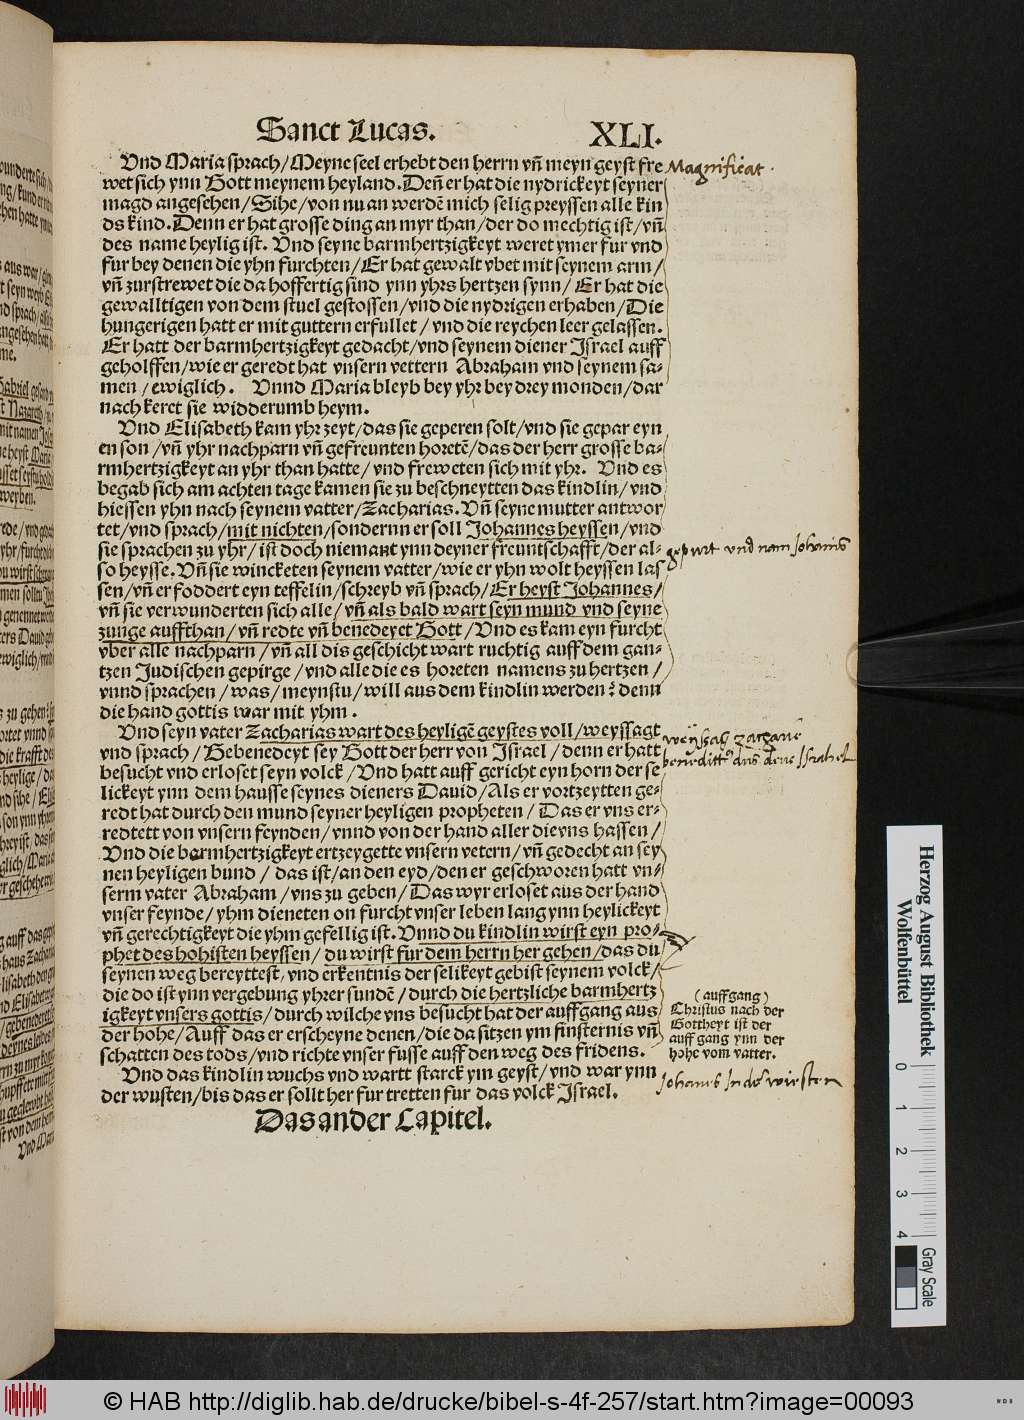 Sanct Lucas. XLI.
Vnd Maria sprach/Meyne seel erhebt den herrn vñ meyn geyst fre
wet sich ynn Gott meynem heyland. Deñ er hat die nydrickeyt seyner
magd angesehen/Sihe/von nu an werdē mich selig preyssen alle kin
ds kind. Denn er hat grosse ding an myr than/der do mechtig ist/vñ
des name heylig ist. Vnd seyne barmhertzigkeyt weret ymer fur vnd
fur bey denen die yhn furchten/Er hat gewalt vbet mit seynem arm/
vñ zurstrewet die da hoffertig sind ynn yhrs hertzen synn/Er hat die
gewalltigen von dem stuel gestossen/vnd die nydrigen erhaben/Die
hungerigen hatt er mit guttern erfullet/vnd die reychen leer gelassen.
Er hatt der barmhertzigkeyt gedacht/vnd seynem diener Israel auff
geholffen/wie er geredt hat vnsern vettern Abraham vnd seynem sa-
men/ewiglich. Vnnd Maria bleyb bey yhr bey drey monden/dar
nach keret sie widderumb heym.
Vnd Elisabeth kam yhr zeyt/das sie geperen solt/vnd sie gepar eyn
en son/vñ yhr nachparn vñ gefreunten horetē/das der herr grosse ba-
rmhertzigkeyt an yhr than hatte/vnd freweten sich mit yhr. Vnd es
begab sich am achten tage kamen sie zu beschneytten das kindlin/vnd
hiessen yhn nach seynem vatter/Zacharias. Vñ seyne mutter antwor
tet/vnd sprach/mit nichten/sondernn er soll Johannes heyssen/vnd
sie sprachen zu yhr/ist doch niemant ynn deyner freuntschafft/der al-
so heysse. Vñ sie wincketen seynem vatter/wie er yhn wolt heyssen las
sen/vñ er foddert eyn teffelin/schreyb vñ sprach/Er heyst Johannes/
vñ sie verwunderten sich alle/vñ als bald wart seyn mund vnd seyne
zunge auffthan/vñ redte vñ benedeyet Gott/Vnd es kam eyn furcht
vber alle nachparn/vñ all dis geschicht wart ruchtig auff dem gan-
tzen Judischen gepirge/vnd alle die es horeten namens zu hertzen/
vnnd sprachen/was/meynstu/will aus dem kindlin werden? denn
die hand gottis war mit yhm.
Vnd seyn vater Zacharias wart des heyligē geystes voll/weyssagt
vnd sprach/Gebenedeyt sey Gott der herr von Israel/denn er hatt
besucht vnd erloset seyn volck/Vnd hatt auff gericht eyn horn der se
lickeyt ynn dem hausse seynes dieners Dauid/Als er vortzeytten ge-
redt hat durch den mund seyner heyligen propheten/Das er vns er-
redtett von vnsern feynden/vnnd von der hand aller die vns hassen/
Vnd die barmhertzigkeyt ertzeygette vnsern vetern/vñ gedecht an sey
nen heyligen bund/das ist/an den eyd/den er geschworen hatt vn-
serm vater Abraham/vns zu geben/Das wyr erloset aus der hand
vnser feynde/yhm dieneten on furcht vnser leben lang ynn heylickeyt
vñ gerechtigkeyt die yhm gefellig ist. Vnnd du kindlin wirst eyn pro-
phet des hohisten heyssen/du wirst fur dem herrn her gehen/das du
seynen weg bereyttest, vnd erkentnis der selikeyt gebist seynem volck/
die do ist ynn vergebung yhrer sundē/durch die hertzliche barmhertz
igkeyt vnsers gottis/durch wilche vns besucht hat der auffgang aus
der hohe/Auff das er erscheyne denen/die da sitzen ym finsternis vñ
schatten des tods/vnd richte vnser fusse auff den weg des fridens.
Vnd das kindlin wuchs vnd wartt starck ym geyst/vnd war ynn
der wusten/bis das er sollt her fur tretten fur das volck Israel.
Das ander Capitel.
Magnificat.
gepurt vnd nam Johanis
weyssag zacharie
benedictus dns deus Israhel
(auffgang)
Christus nach der
Gottheyt ist der
auffgang ynn der
hohe vom vatter.
Johanes in der wiesten
Herzog August Bibliothek
Wolfenbüttel
0 1 2 3 4
Gray Scale
© HAB http://diglib.hab.de/drucke/bibel-s-4f-257/start.htm?image=00093